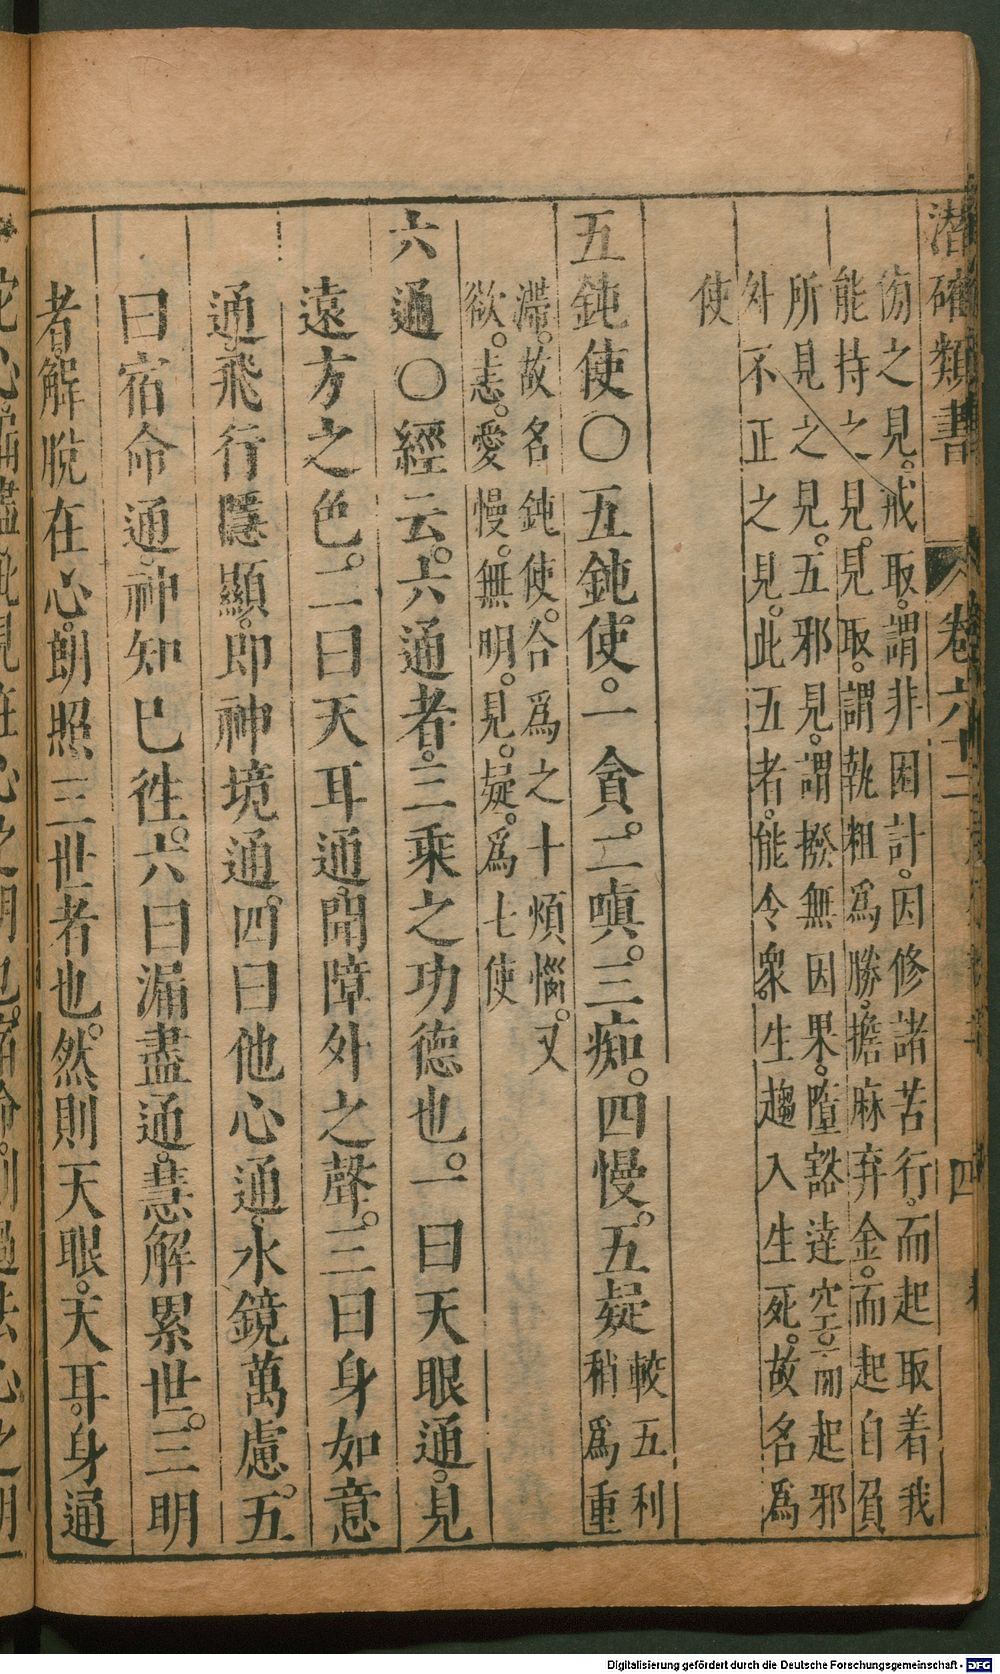 潛確類書 卷六十二 四
徇之見。戒取。謂非因計因。修諸苦行。而起取着我
能持之見。見取。謂執粗為勝。擔麻弃金。而起自負
所見之見。五邪見。謂撥無因果。墮豁達空。而起邪
外不正之見。此五者。能令衆生趨入生死。故名為
使
五鈍使〇五鈍使。一貪。二嗔。三痴。四慢。五疑較五利
稍為重
滯。故名鈍使。合為之十煩惱。又
欲。恚。愛。慢。無明。見。疑。為七使
六通〇經云。六通者。三乘之功德也。一曰天眼通。見
遠方之色。二曰天耳通。聞障外之聲。三曰身如意
通。飛行隱顯。即神境通。四曰他心通。水鏡萬慮。五
曰宿命通。神知巳徃。六曰漏盡通。慧解累世。三明
者。解脫在心。朗照三世者也。然則天眼。天耳。身通
Digitalisierung gefördert durch die Deutsche Forschungsgemeinschaft - DFG